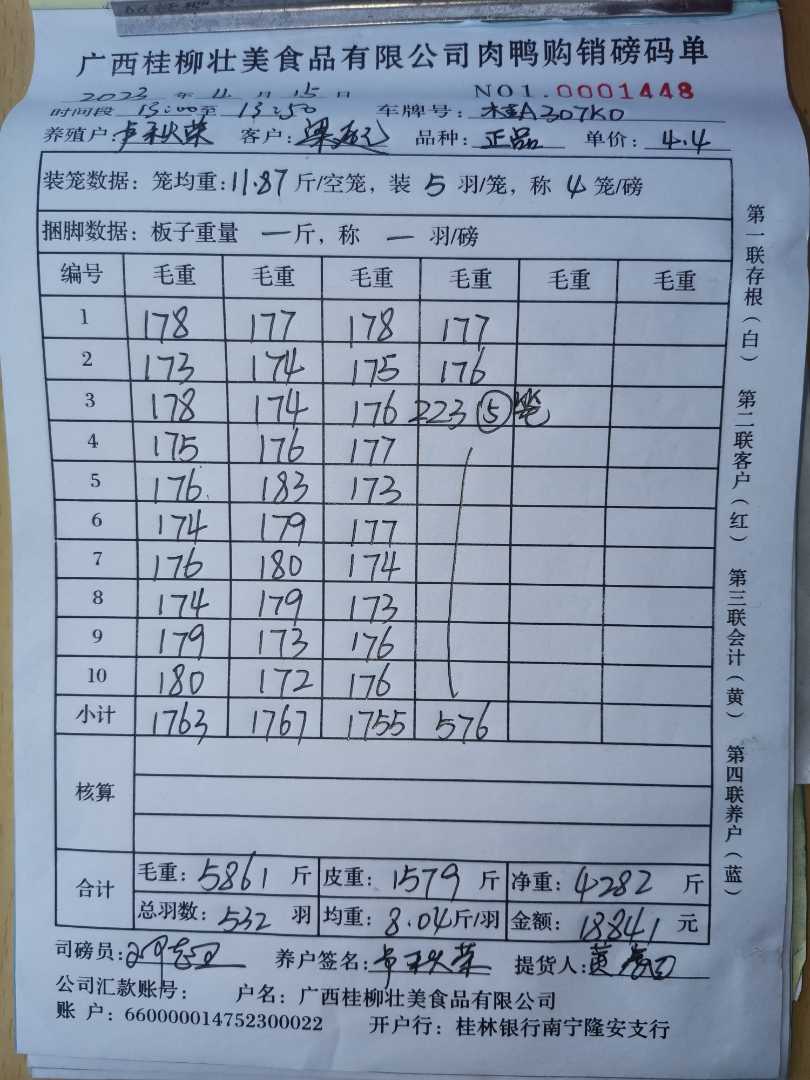 广西桂柳壮美食品有限公司肉鸭购销磅码单
2023 年 11 月 15 日 NO1.0001448
时间段 13:00至 13:50 车牌号: 桂A307K0
养殖户: 卢秋荣 客户: 梁 品种: 正品 单价: 4.4
装笼数据: 笼均重: 11.87 斤/空笼, 装 5 羽/笼, 称 4 笼/磅
捆脚数据: 板子重量 一 斤, 称 一 羽/磅
编号 毛重 毛重 毛重 毛重 毛重 毛重
1 178 177 178 177
2 173 174 175 176
3 178 174 176 223 ⑤笼
4 175 176 177
5 176 183 173
6 174 179 177
7 176 180 174
8 174 179 173
9 179 173 176
10 180 172 176
小计 1763 1767 1755 576
核算
合计 毛重: 5861 斤 皮重: 1579 斤 净重: 4282 斤
总羽数: 532 羽 均重: 8.04 斤/羽 金额: 18841 元
司磅员: 养户签名: 卢秋荣 提货人: 黄
公司汇款账号: 户名: 广西桂柳壮美食品有限公司
账 户: 660000014752300022 开户行: 桂林银行南宁隆安支行
第一联存根(白)
第二联客户(红)
第三联会计(黄)
第四联养户(蓝)